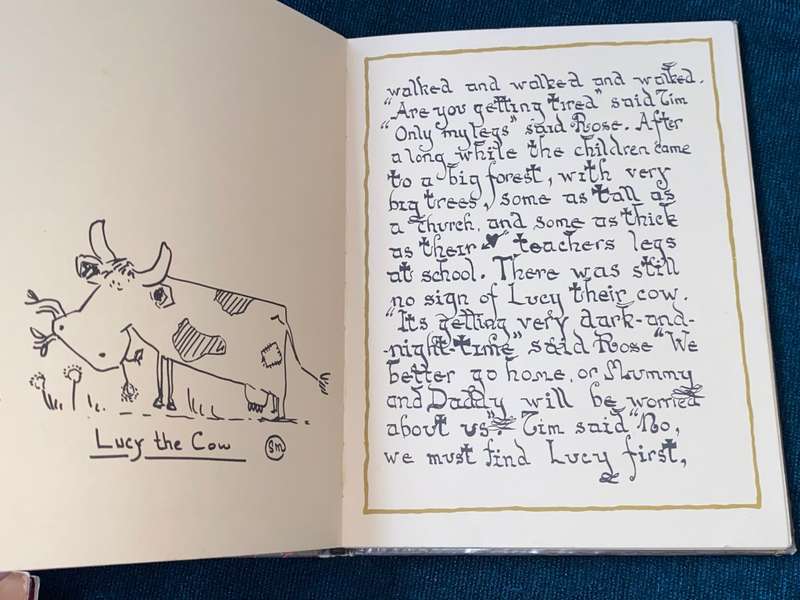 Lucy the Cow
SM
walked and walked and walked.
"Are you getting tired" said Tim
"Only my legs" said Rose. After
a long while the children came
to a big forest, with very
big trees, some as tall as
a church, and some as thick
as their teachers legs
at school. There was still
no sign of Lucy their cow.
"Its getting very dark-and-
-night-time" said Rose "We
better go home, or Mummy
and Daddy will be worried
about us". Tim said "No,
we must find Lucy first,